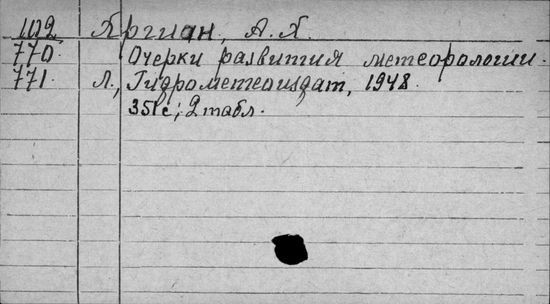 1102 Хргиан, А. Х.
770. Очерки развития метеорологии.
771. Л., Гидрометеоиздат, 1948.
351 с; 2 табл.